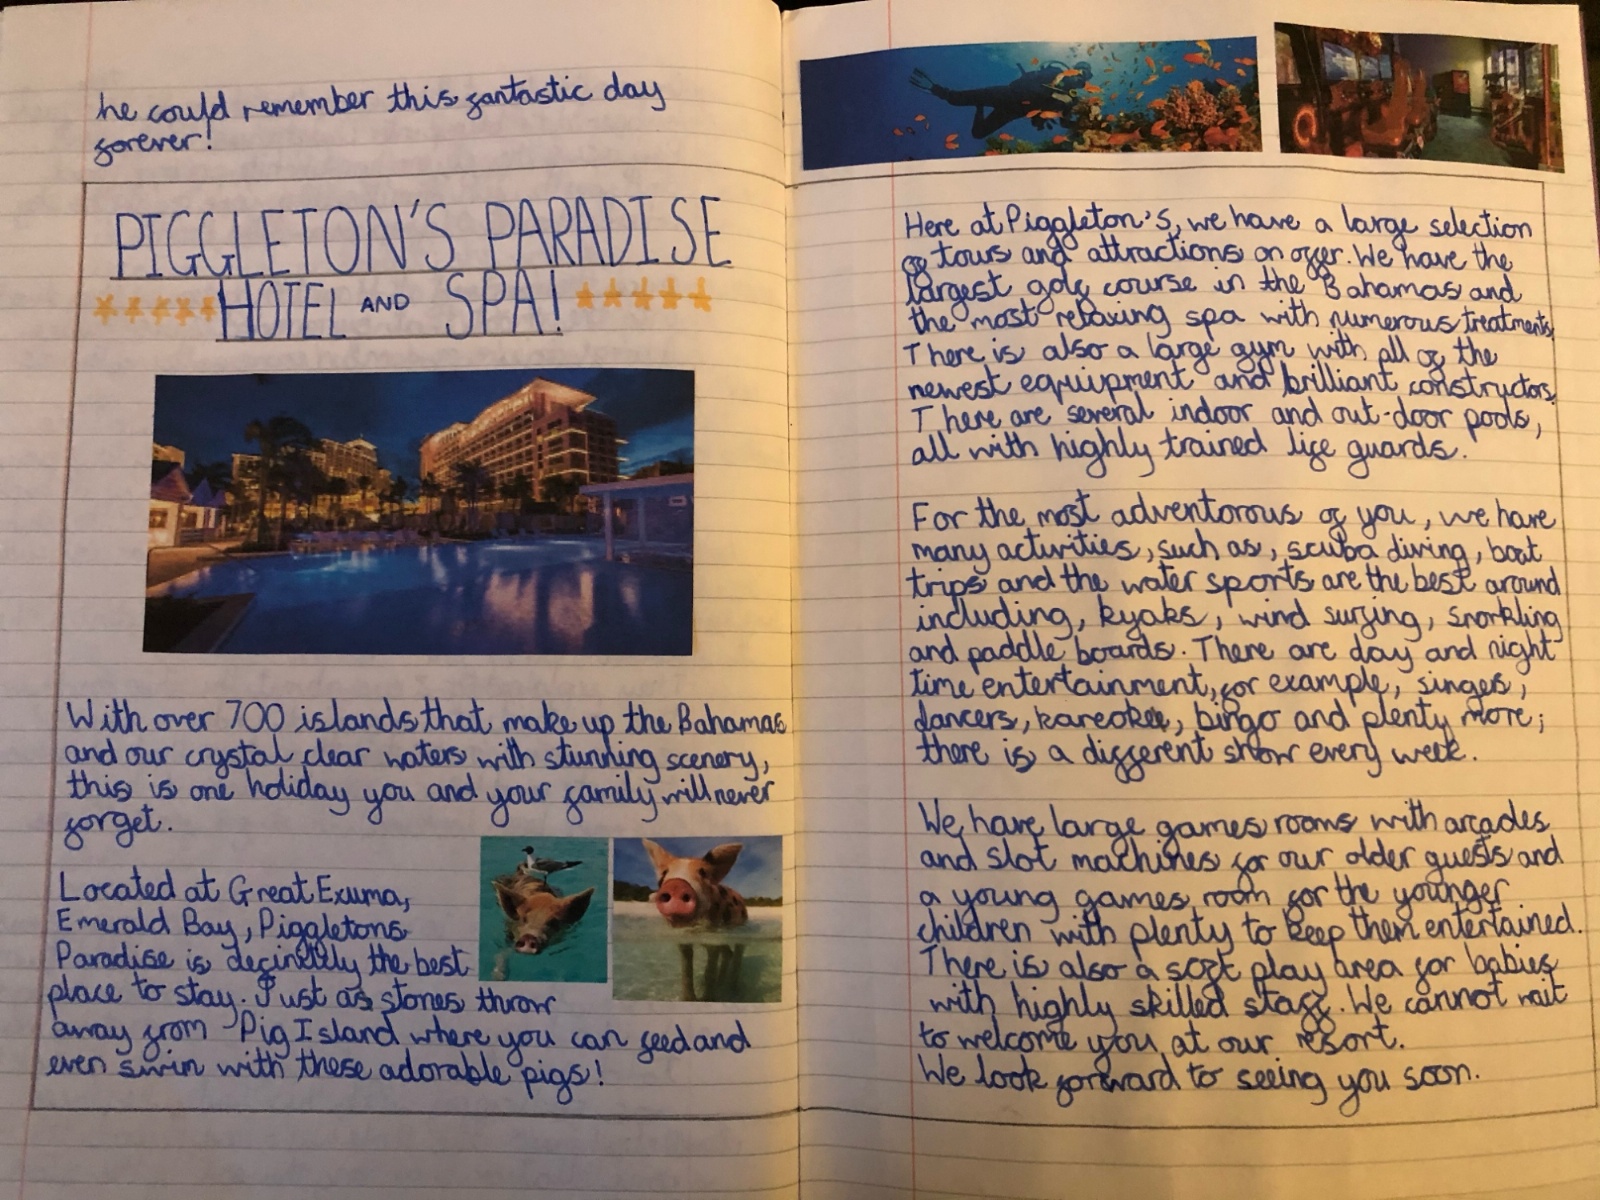 he could remember this fantastic day
forever!
PIGGLETON'S PARADISE
HOTEL AND SPA!
With over 700 islands that make up the Bahamas
and our crystal clear waters with stunning scenery,
this is one holiday you and your family will never
forget.
Located at Great Exuma,
Emerald Bay, Piggletons
Paradise is definitely the best
place to stay. Just as stones throw
away from Pig Island where you can feed and
even swim with these adorable pigs!
Here at Piggleton's, we have a large selection
of tours and attractions on offer. We have the
largest golf course in the Bahamas and
the most relaxing spa with numerous treatments.
There is also a large gym with all of the
newest equipment and brilliant constructors.
There are several indoor and out-door pools,
all with highly trained life guards.
For the most adventorous of you, we have
many activities, such as, scuba diving, boat
trips and the water sports are the best around
including, kyaks, wind surfing, snorkling
and paddle boards. There are day and night
time entertainment, for example, singes,
dancers, kareokee, bingo and plenty more;
there is a different show every week.
We have large games rooms with arcades
and slot machines for our older guests and
a young games room for the younger
children with plenty to keep them entertained.
There is also a soft play area for babies
with highly skilled staff. We cannot wait
to welcome you at our resort.
We look forward to seeing you soon.